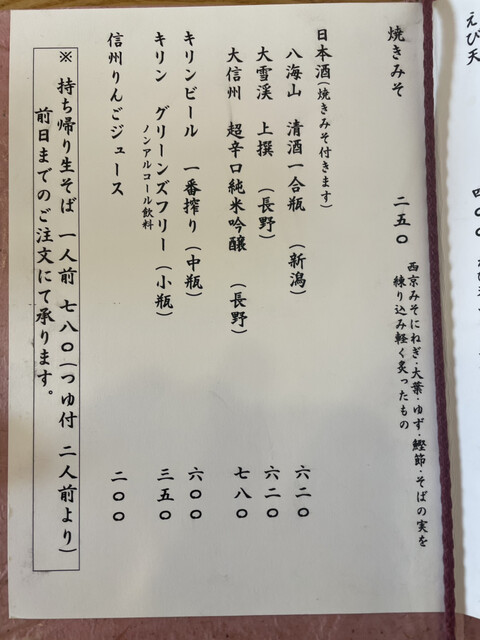 えび天
焼きみそ 二五〇
西京みそにねぎ・大葉・ゆず・鰹節・そばの実を
練り込み軽く炙ったもの
日本酒(焼きみそ付きます)
八海山 清酒一合瓶 (新潟) 六二〇
大雪渓 上撰 (長野) 六二〇
大信州 超辛口純米吟醸 (長野) 七八〇
キリンビール 一番搾り(中瓶) 六〇〇
キリン グリーンズフリー(小瓶) 三五〇
ノンアルコール飲料
信州りんごジュース 二〇〇
※ 持ち帰り生そば 一人前 七八〇(つゆ付 二人前より)
前日までのご注文にて承ります。